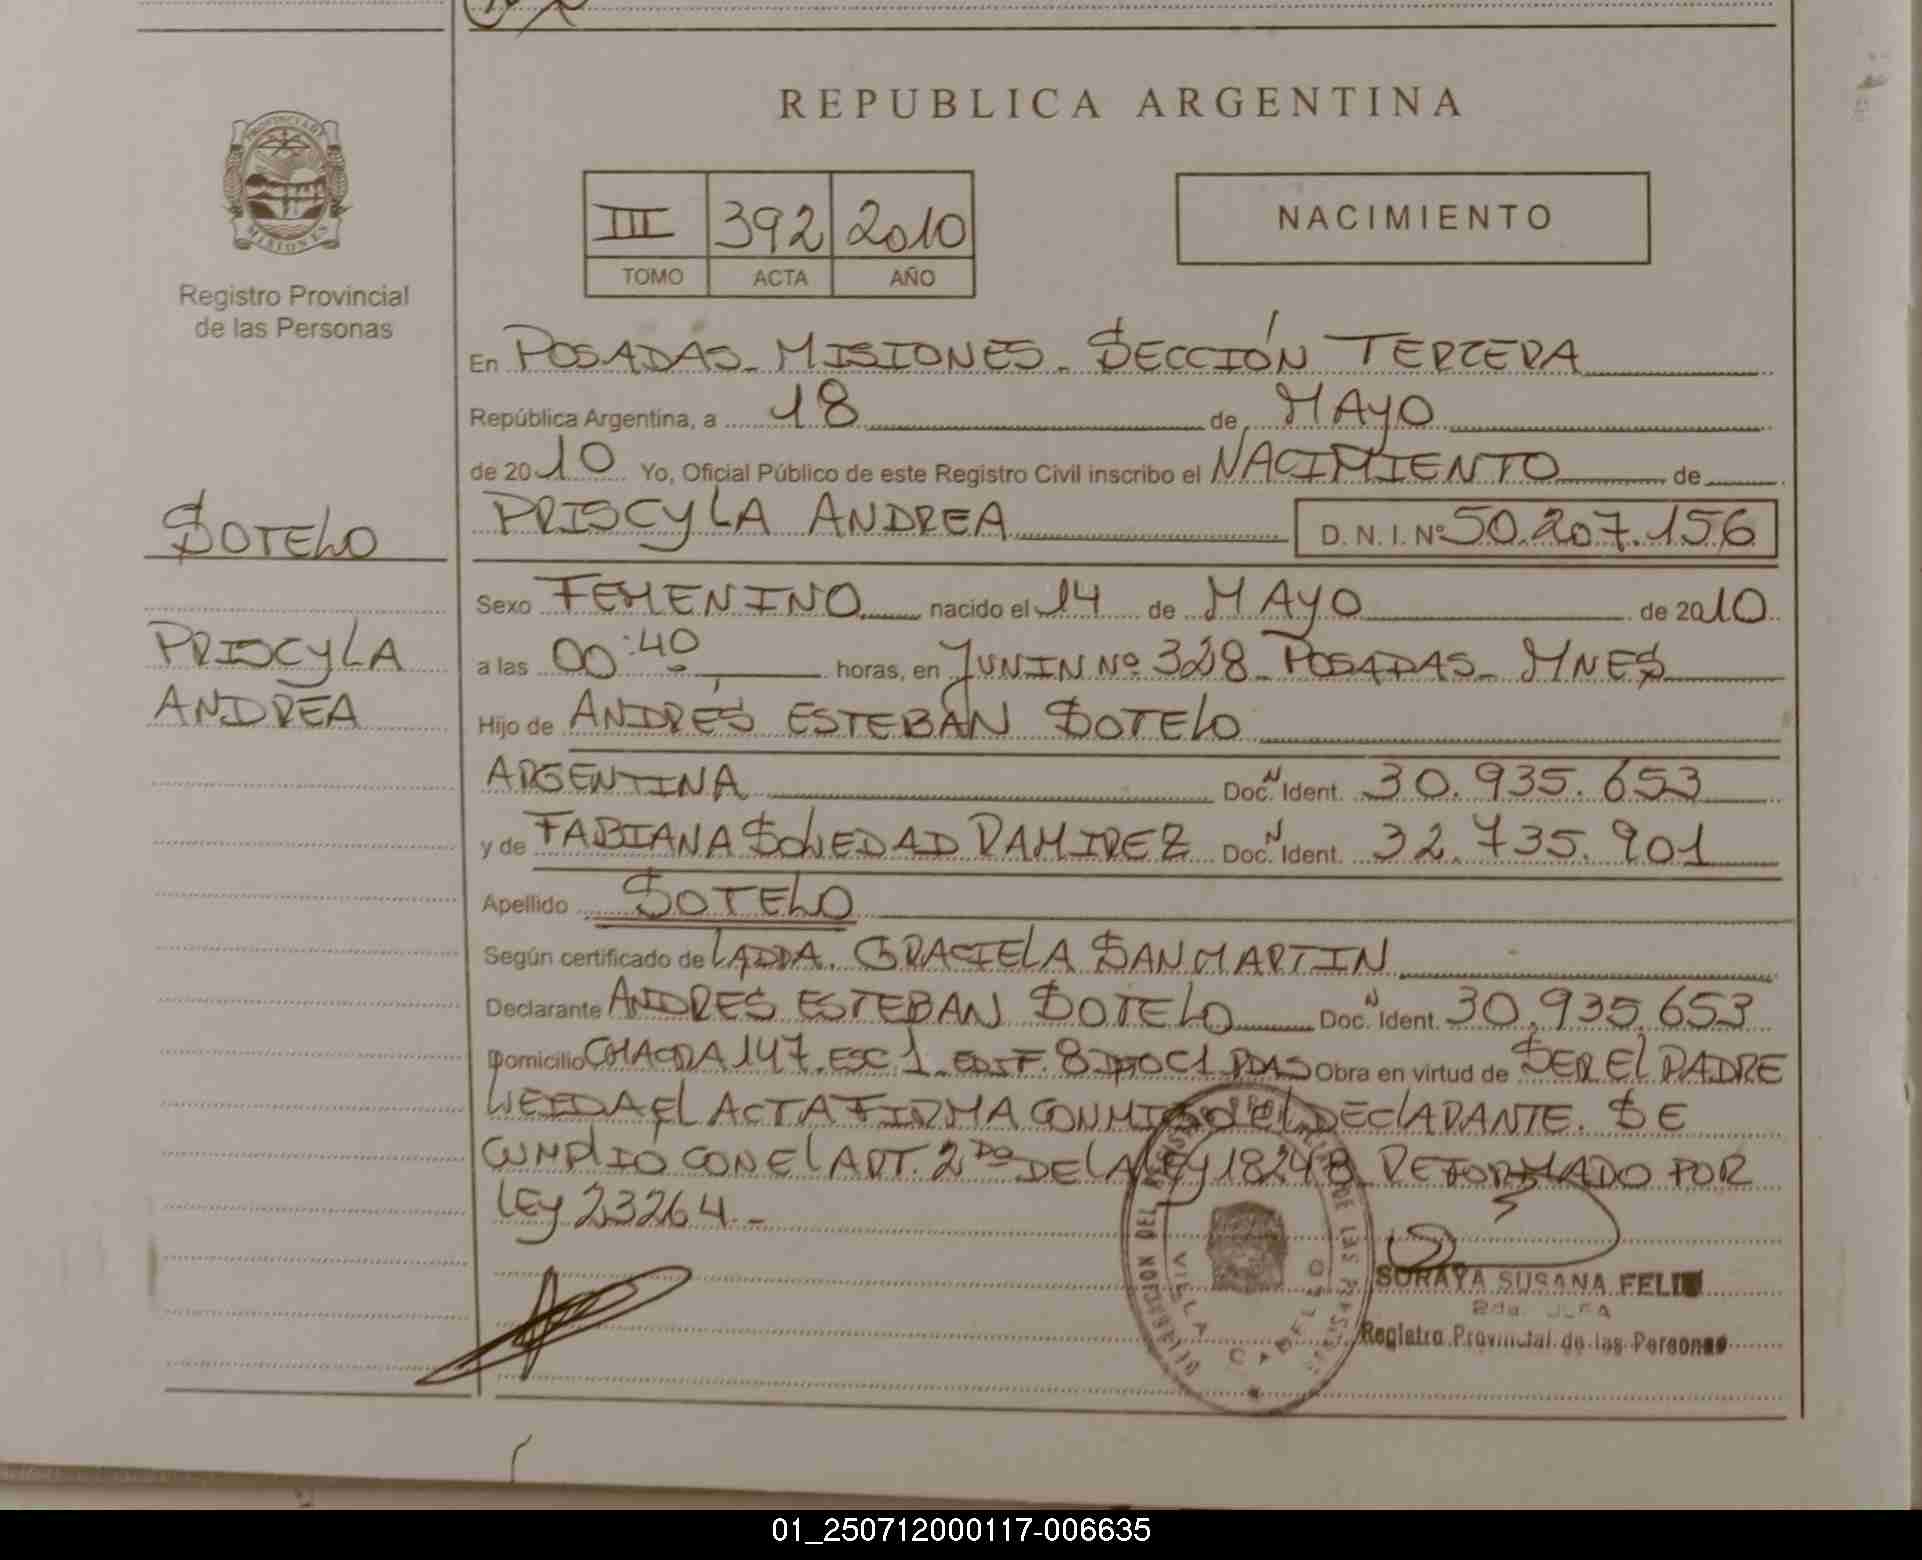 REPUBLICA ARGENTINA
PROVINCIA DE
MISIONES
Registro Provincial
de las Personas
III 392 2010
TOMO ACTA AÑO
NACIMIENTO
En POSADAS - MISIONES - SECCIÓN TERCERA
República Argentina, a 18 de MAYO
de 2010 Yo, Oficial Público de este Registro Civil inscribo el NACIMIENTO de
SOTELO
PRISCYLA ANDREA D. N. I. Nº 50.207.156
Sexo FEMENINO nacido el 14 de MAYO de 2010
PRISCYLA
ANDREA
a las 00:40 horas, en JUNIN Nº 328 - POSADAS - MNES
Hijo de ANDRÉS ESTEBAN SOTELO
ARGENTINA Doc. N Ident. 30.935.653
y de FABIANA SOLEDAD RAMIREZ Doc. N Ident. 32.735.901
Apellido SOTELO
Según certificado de LA DRA. GRACIELA SANMARTIN
Declarante ANDRES ESTEBAN SOTELO Doc. N Ident. 30.935.653
Domicilio CHACRA 147. ESC 1. EDIF. 8 DPTO C1 PDAS Obra en virtud de SER EL PADRE
LEIDA EL ACTA FIRMA CONMIGO EL DECLARANTE. SE
CUMPLIÓ CON EL ART. 2DO DE LA LEY 18248 REFORMADO POR
LEY 23264.-
SORAYA SUSANA FELIU
2da. JEFA
Registro Provincial de las Personas
01_250712000117-006635